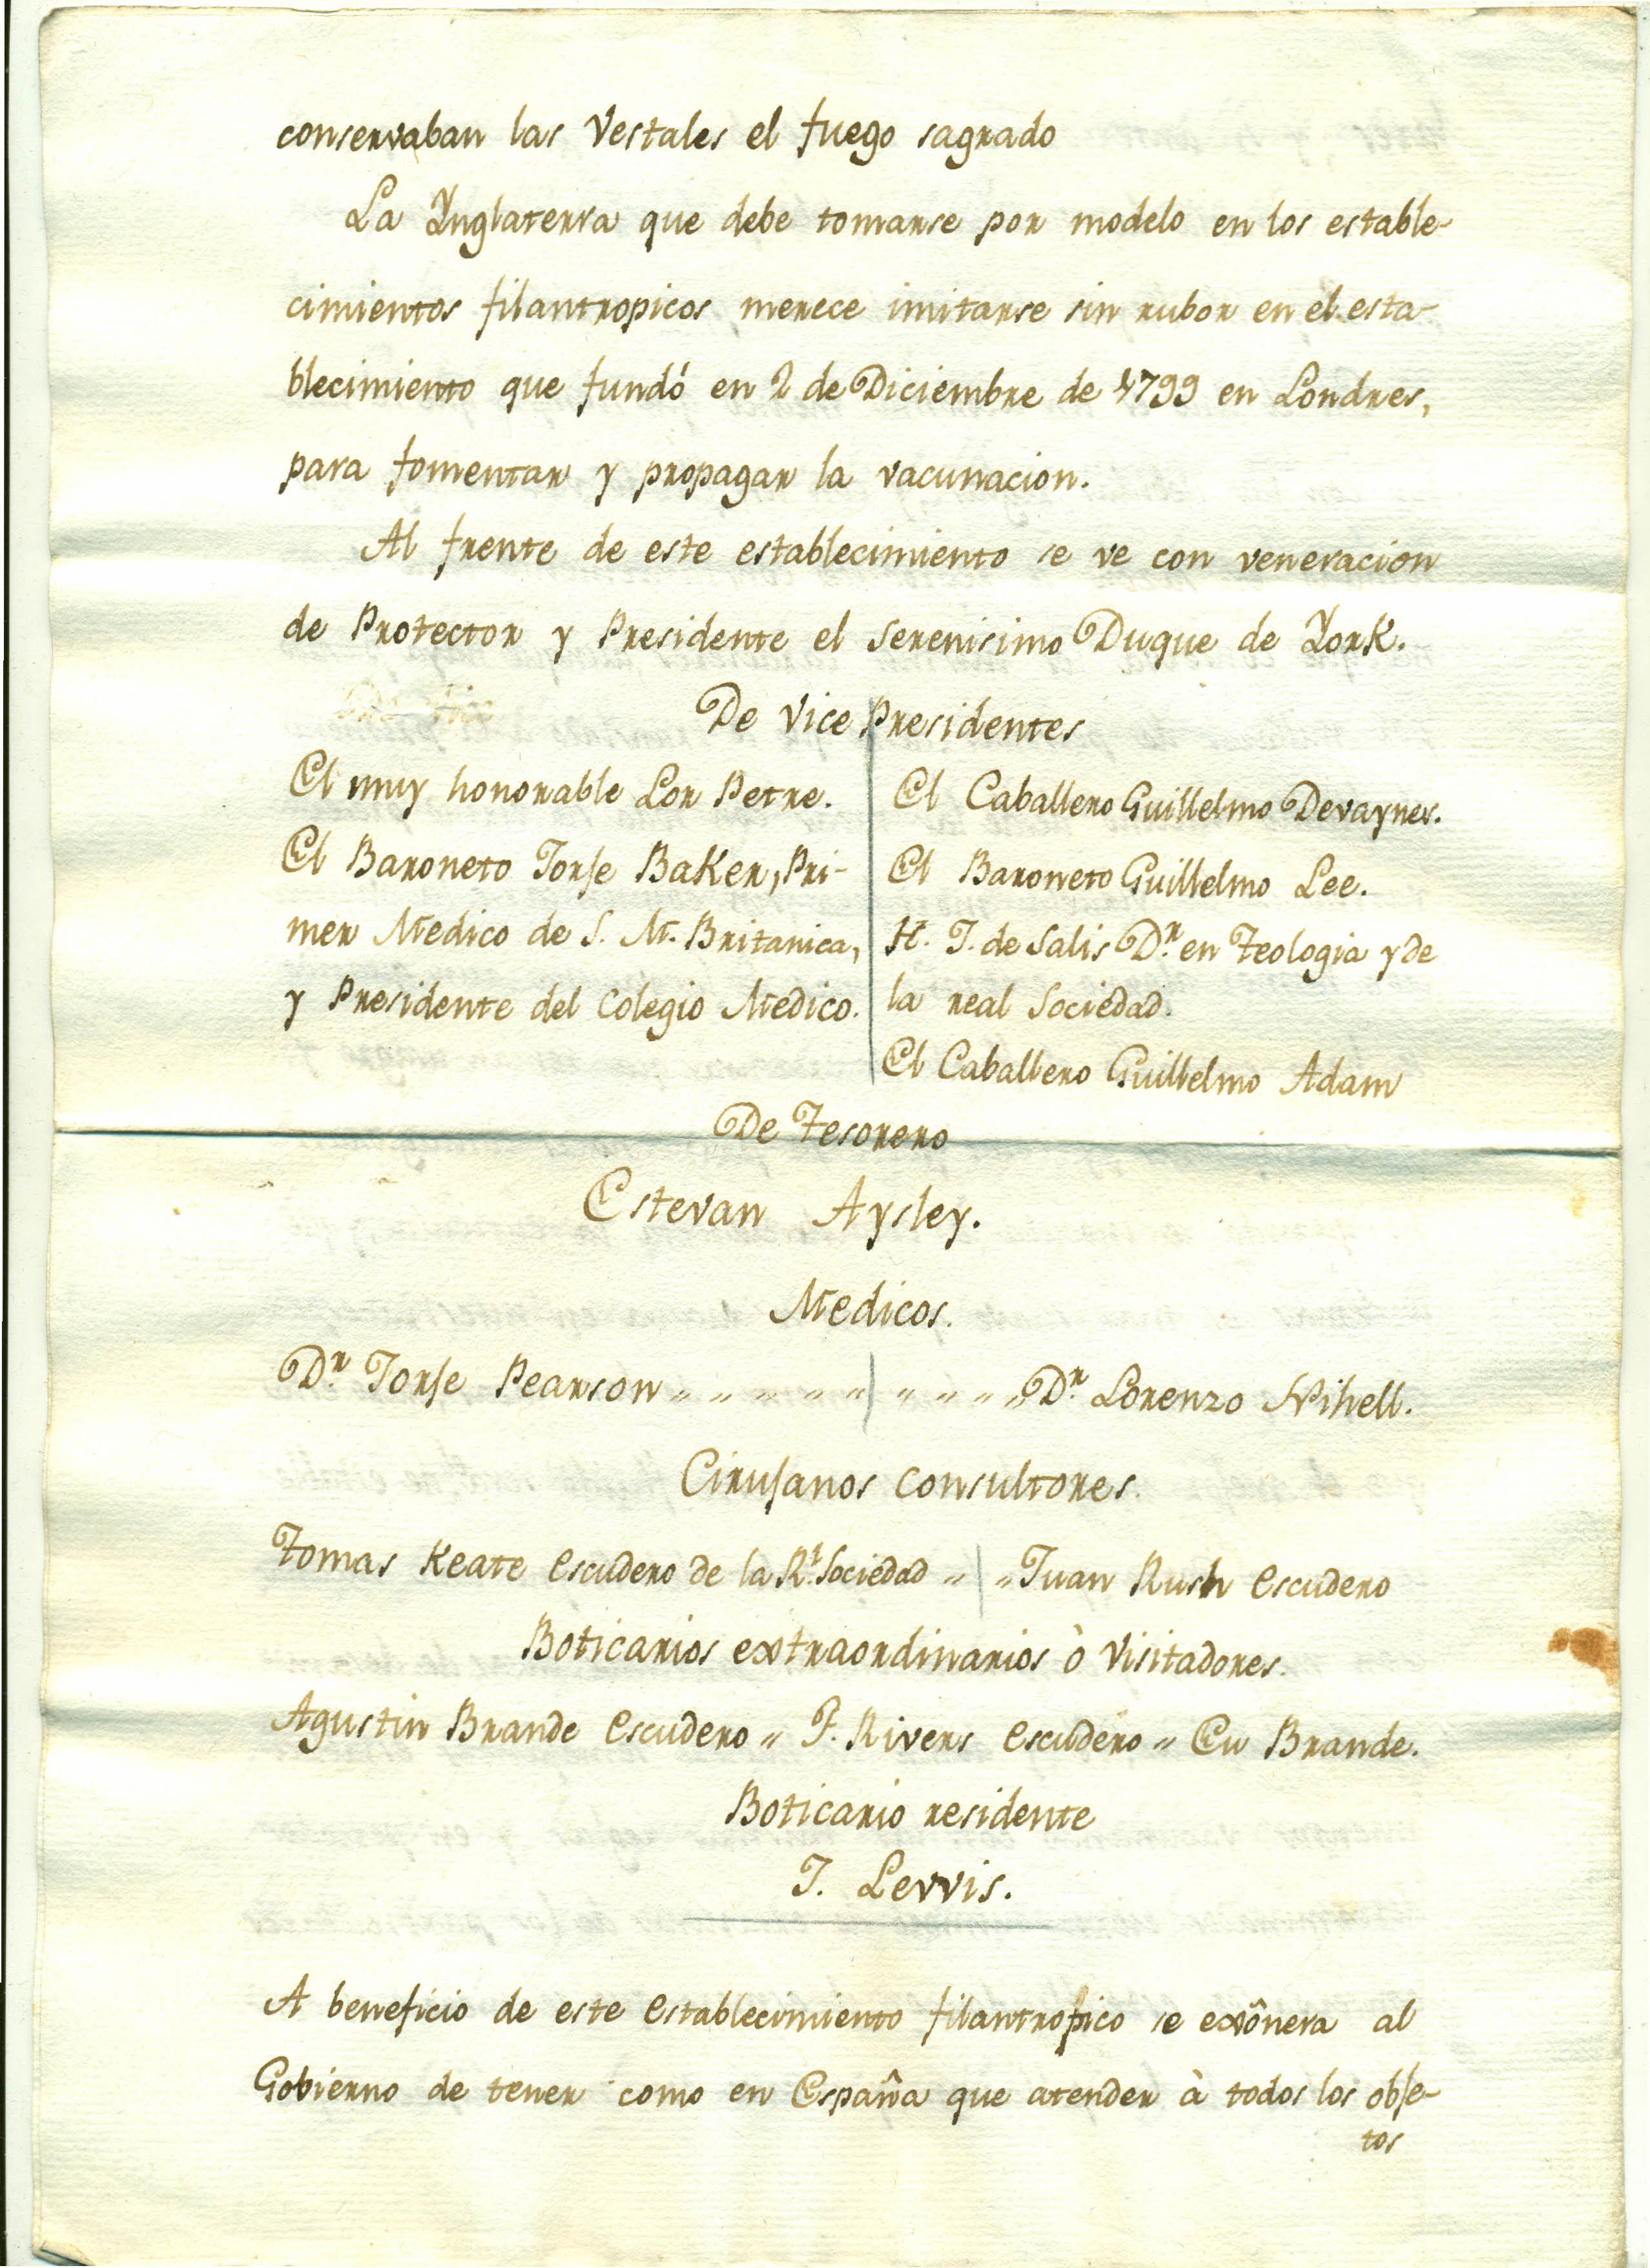 conservaban las Vestales el fuego sagrado
La Ynglaterra que debe tomarse por modelo en los estable-
cimientos filantropicos, merece imitarse sin rubor en el esta-
blecimiento que fundó en 2 de Diciembre de 1799 en Londres,
para fomentar y propagar la vacunacion.
Al frente de este establecimiento se ve con veneracion
de Protector y Presidente el Serenisimo Duque de York.
De Vice Presidentes
El muy honorable Lor Petre.
El Baroneto Jorje Baker, Pri-
mer Medico de S. M. Britanica,
y Presidente del Colegio Medico.
El Caballero Guillelmo Devaynes.
El Baroneto Guillelmo Lee.
H. J. de Salis Dr. en Teologia y de
la real Sociedad.
El Caballero Guillelmo Adam
De Tesorero
Estevan Aysley.
Medicos.
Dr. Jorje Pearson " " " " " " " " " Dr. Lorenzo Nihell.
Cirujanos Consultores.
Tomas Keate Escudero de la Rl. Sociedad " " Juan Rush Escudero
Boticarios extraordinarios ò Visitadores.
Agustin Brande Escudero " F. Rivers Escudero " Ev Brande.
Boticario residente
J. Levvis.
A beneficio de este Establecimiento filantropico se exônera al
Gobierno de tener como en España que atender à todos los obje-
tos